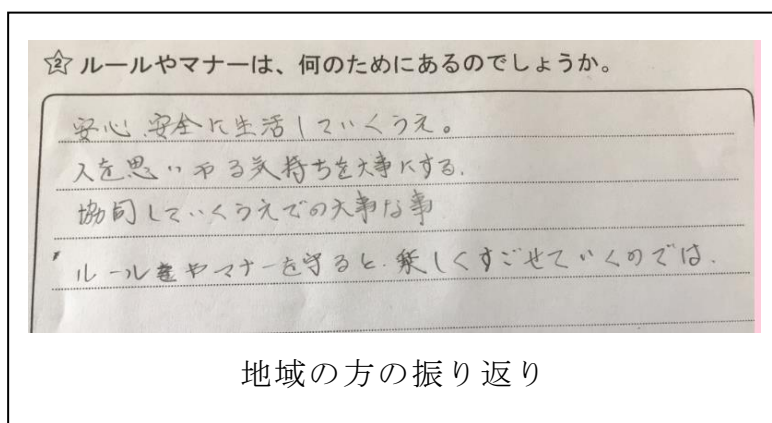 ☆2 ルールやマナーは、何のためにあるのでしょうか。
安心、安全に生活していくうえ。
人を思いやる気持ちを大事にする.
協同していくうえでの大事な事
ルールやマナーを守ると、楽しくすごせていくのでは.
地域の方の振り返り